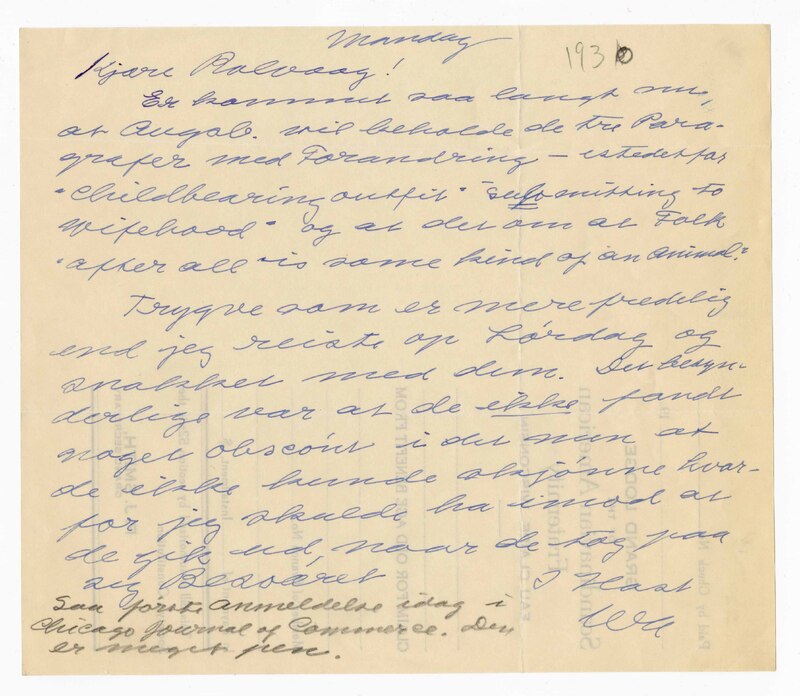 Mandag
1930
Kjære Rolvaag!
Er kommet saa langt nu,
at Augsb. vil beholde de tre Para-
grafer med Forandring - istedetfor
"childbearing outfit" "submitting to
wifehood" og at det om at Folk
"after all" is some kind of an animal".
Trygve som er mere fredelig
end jeg reiste op Lørdag og
snakket med dem. Det besyn-
derlige var at de ikke fandt
noget obscønt i det men at
de ikke kunde skjønne hvor-
for jeg skulde ha imod at
de gik ud, naar de tog paa
sig Besværet
I Hast
Saa første Anmeldelse idag i
Chicago Journal of Commerce. Den
er meget pen.